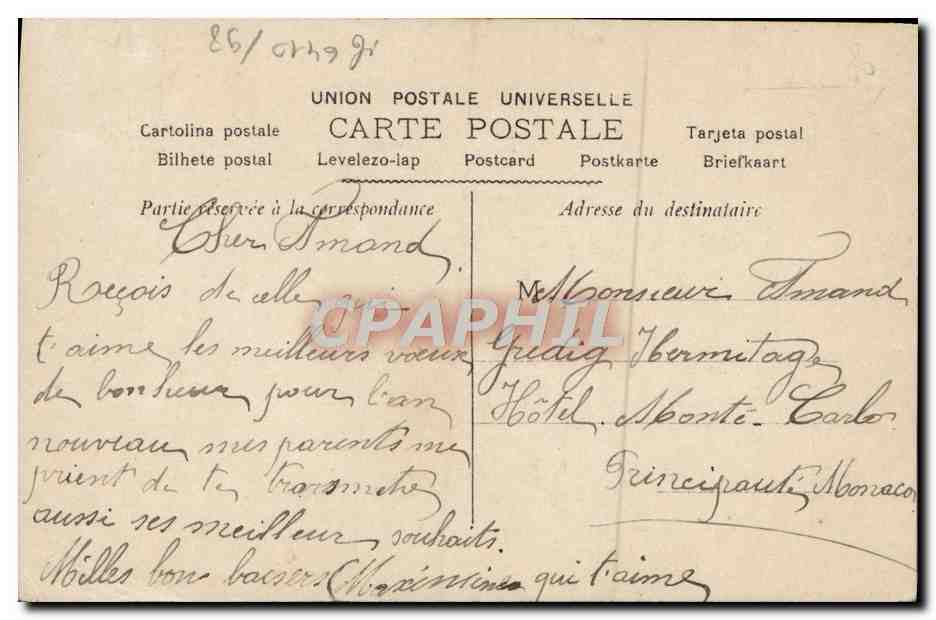 UNION POSTALE UNIVERSELLE
Cartolina postale CARTE POSTALE Tarjeta postal
Bilhete postal Levelezo-lap Postcard Postkarte Briefkaart
Partie réservée à la correspondance
Cher Amand
Reçois de celle qui
t'aime les meilleurs vœux
de bonheur pour l'an
nouveau mes parents me
prient de te transmetre
aussi ses meilleur souhaits.
Milles bon baisers qui t'aime
Adresse du destinataire
M Monsieur Amand
Gredig Hermitage
Hôtel. Monte-Carlo
Principauté Monaco
CPAPHIL